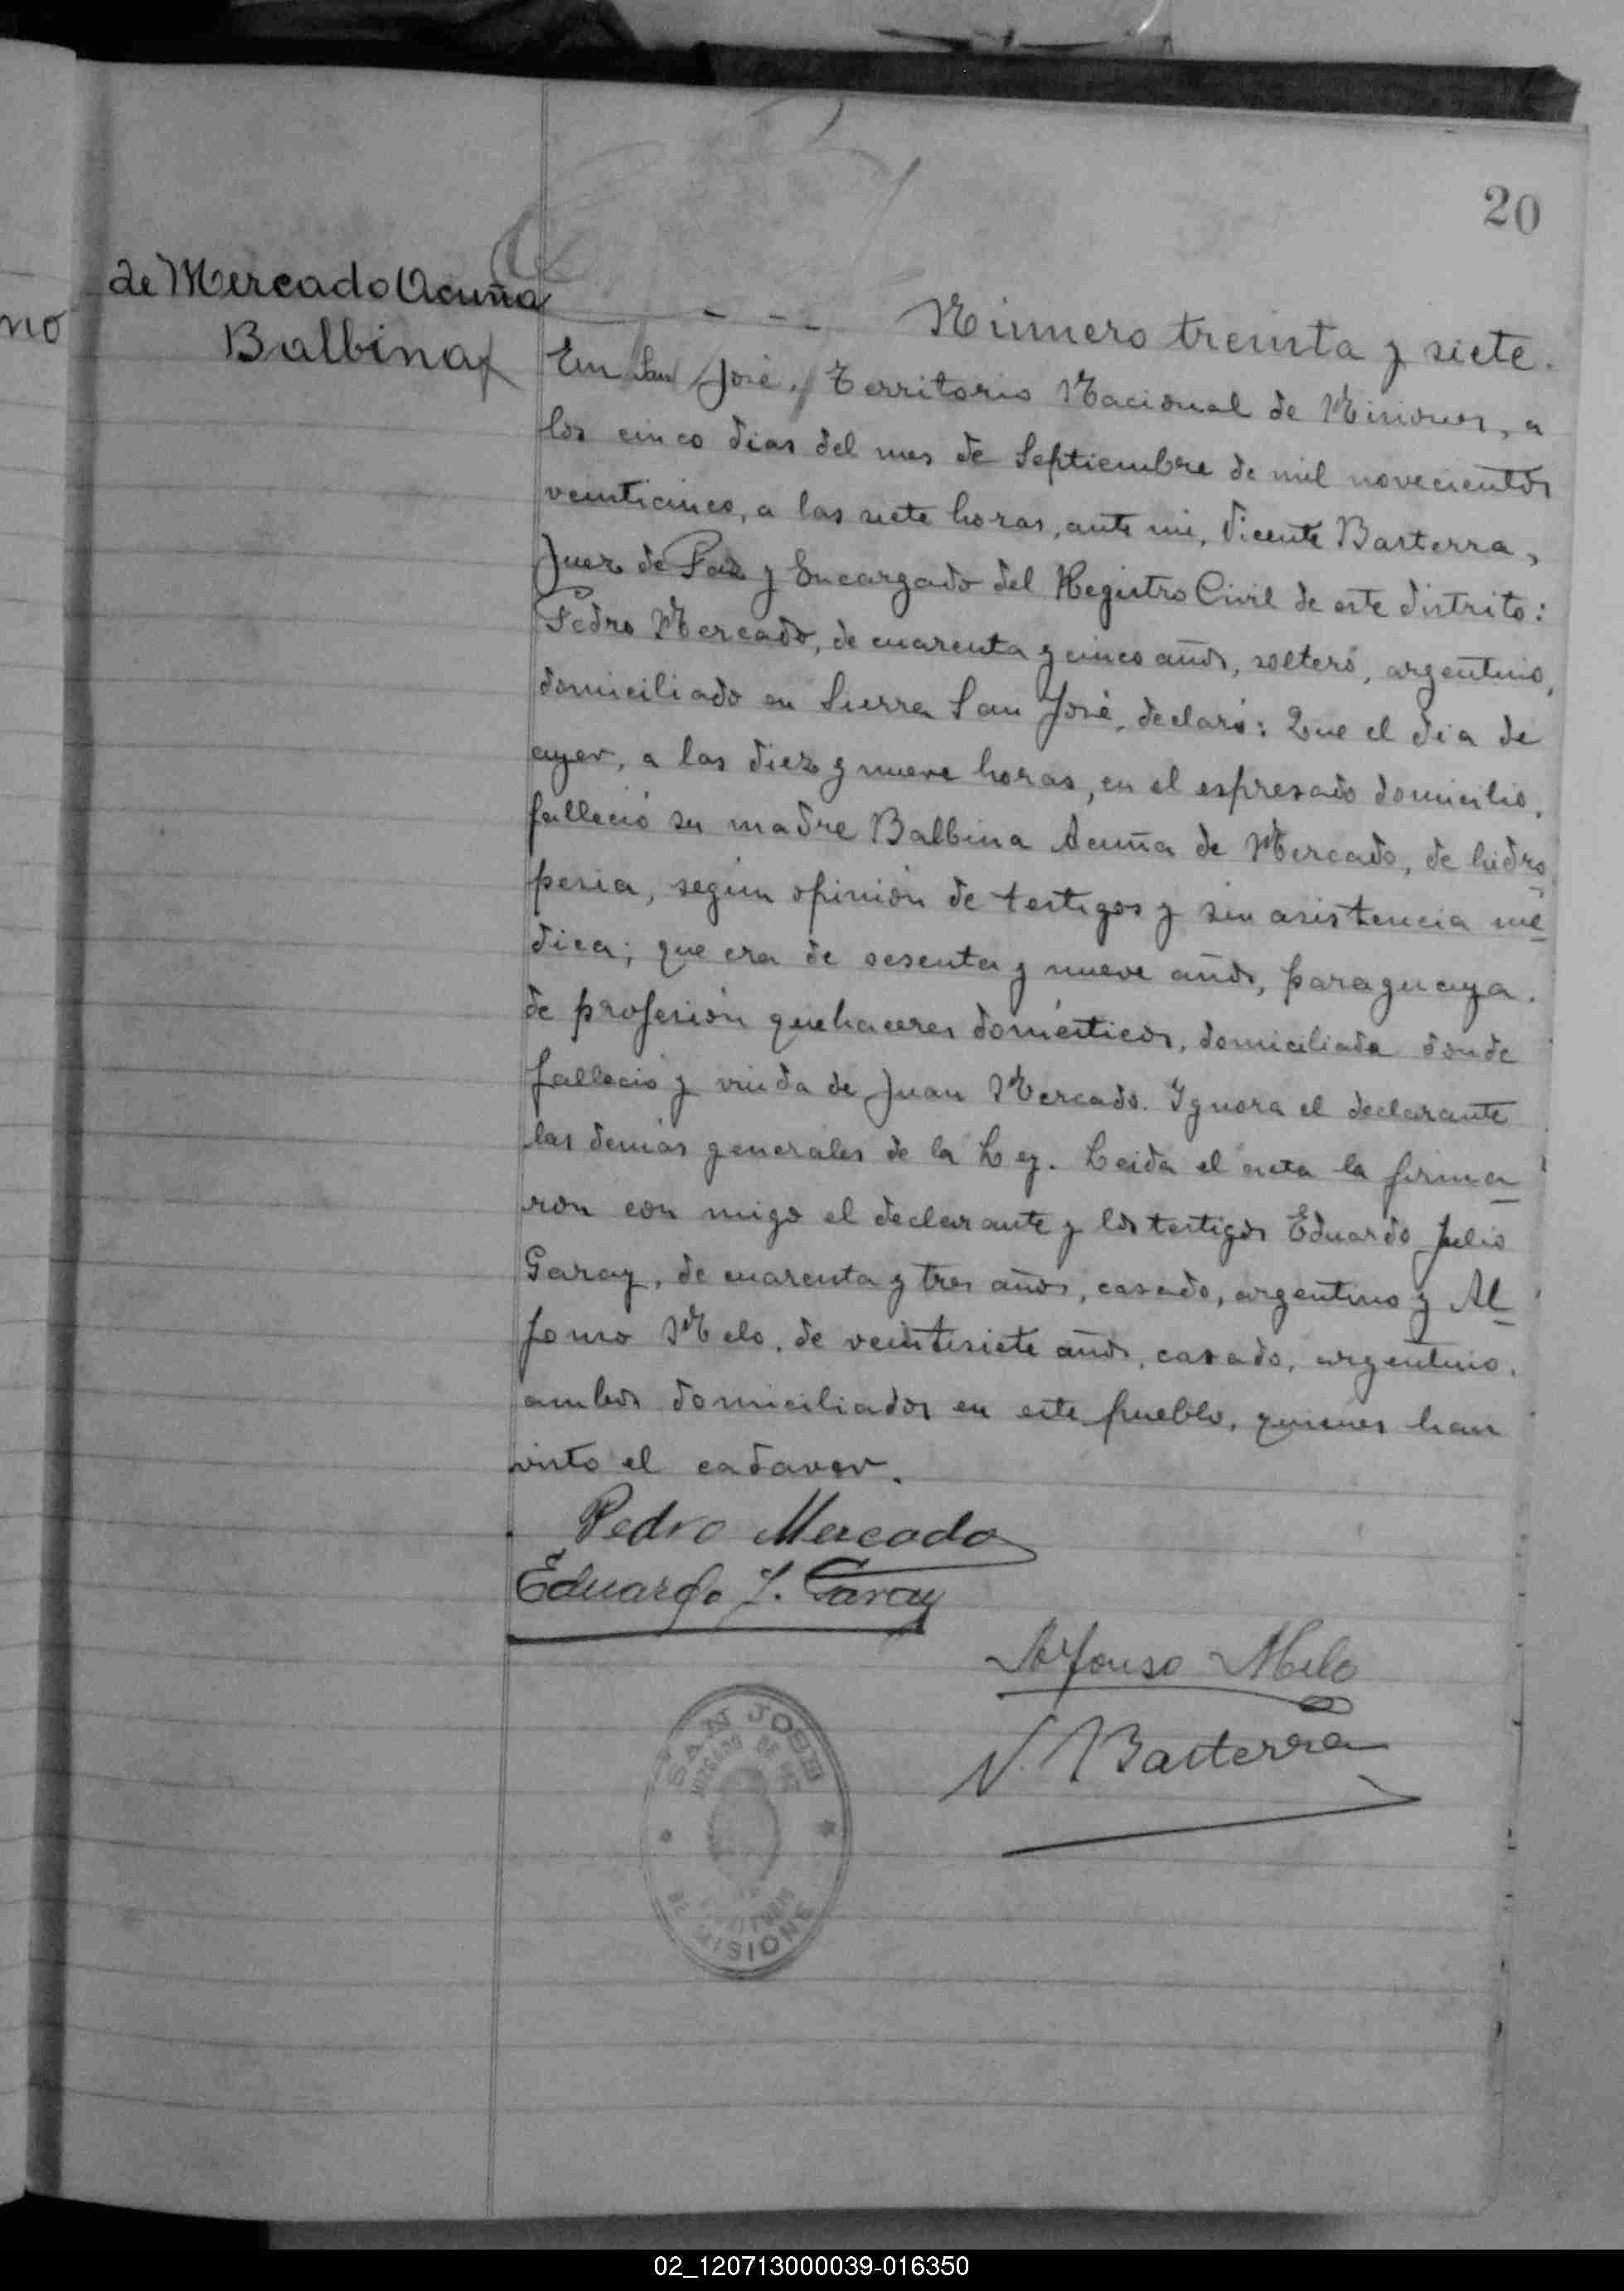 20
de Mercado Acuña
no
Balbina
Número treinta y siete.
En San José, Territorio Nacional de Misiones, a
los cinco dias del mes de Septiembre de mil novecientos
veinticinco, a las siete horas, ante mi, Vicente Basterra,
Juez de Paz y Encargado del Registro Civil de este distrito:
Pedro Mercado, de cuarenta y cinco años, soltero, argentino,
domiciliado en Sierra San José, declaró: Que el dia de
ayer, a las diez y nueve horas, en el espresado domicilio,
falleció su madre Balbina Acuña de Mercado, de hidro-
pesia, según opinión de testigos y sin asistencia me-
dica; que era de sesenta y nueve años, paraguaya,
de profesión quehaceres domésticos, domiciliada donde
falleció y viuda de Juan Mercado. Ignora el declarante
las demás generales de la Ley. Leida el acta la firma-
ron con migo el declarante y los testigos Eduardo Julio
Garay, de cuarenta y tres años, casado, argentino y Al-
fonso Melo, de veintisiete años, casado, argentino,
ambos domiciliados en este pueblo, quienes han
visto el cadaver.
Pedro Mercado
Eduardo J. Garay
Alfonso Melo
V. Basterra
SAN JOSE
JUZGADO DE PAZ
DE MISIONES
02_120713000039-016350